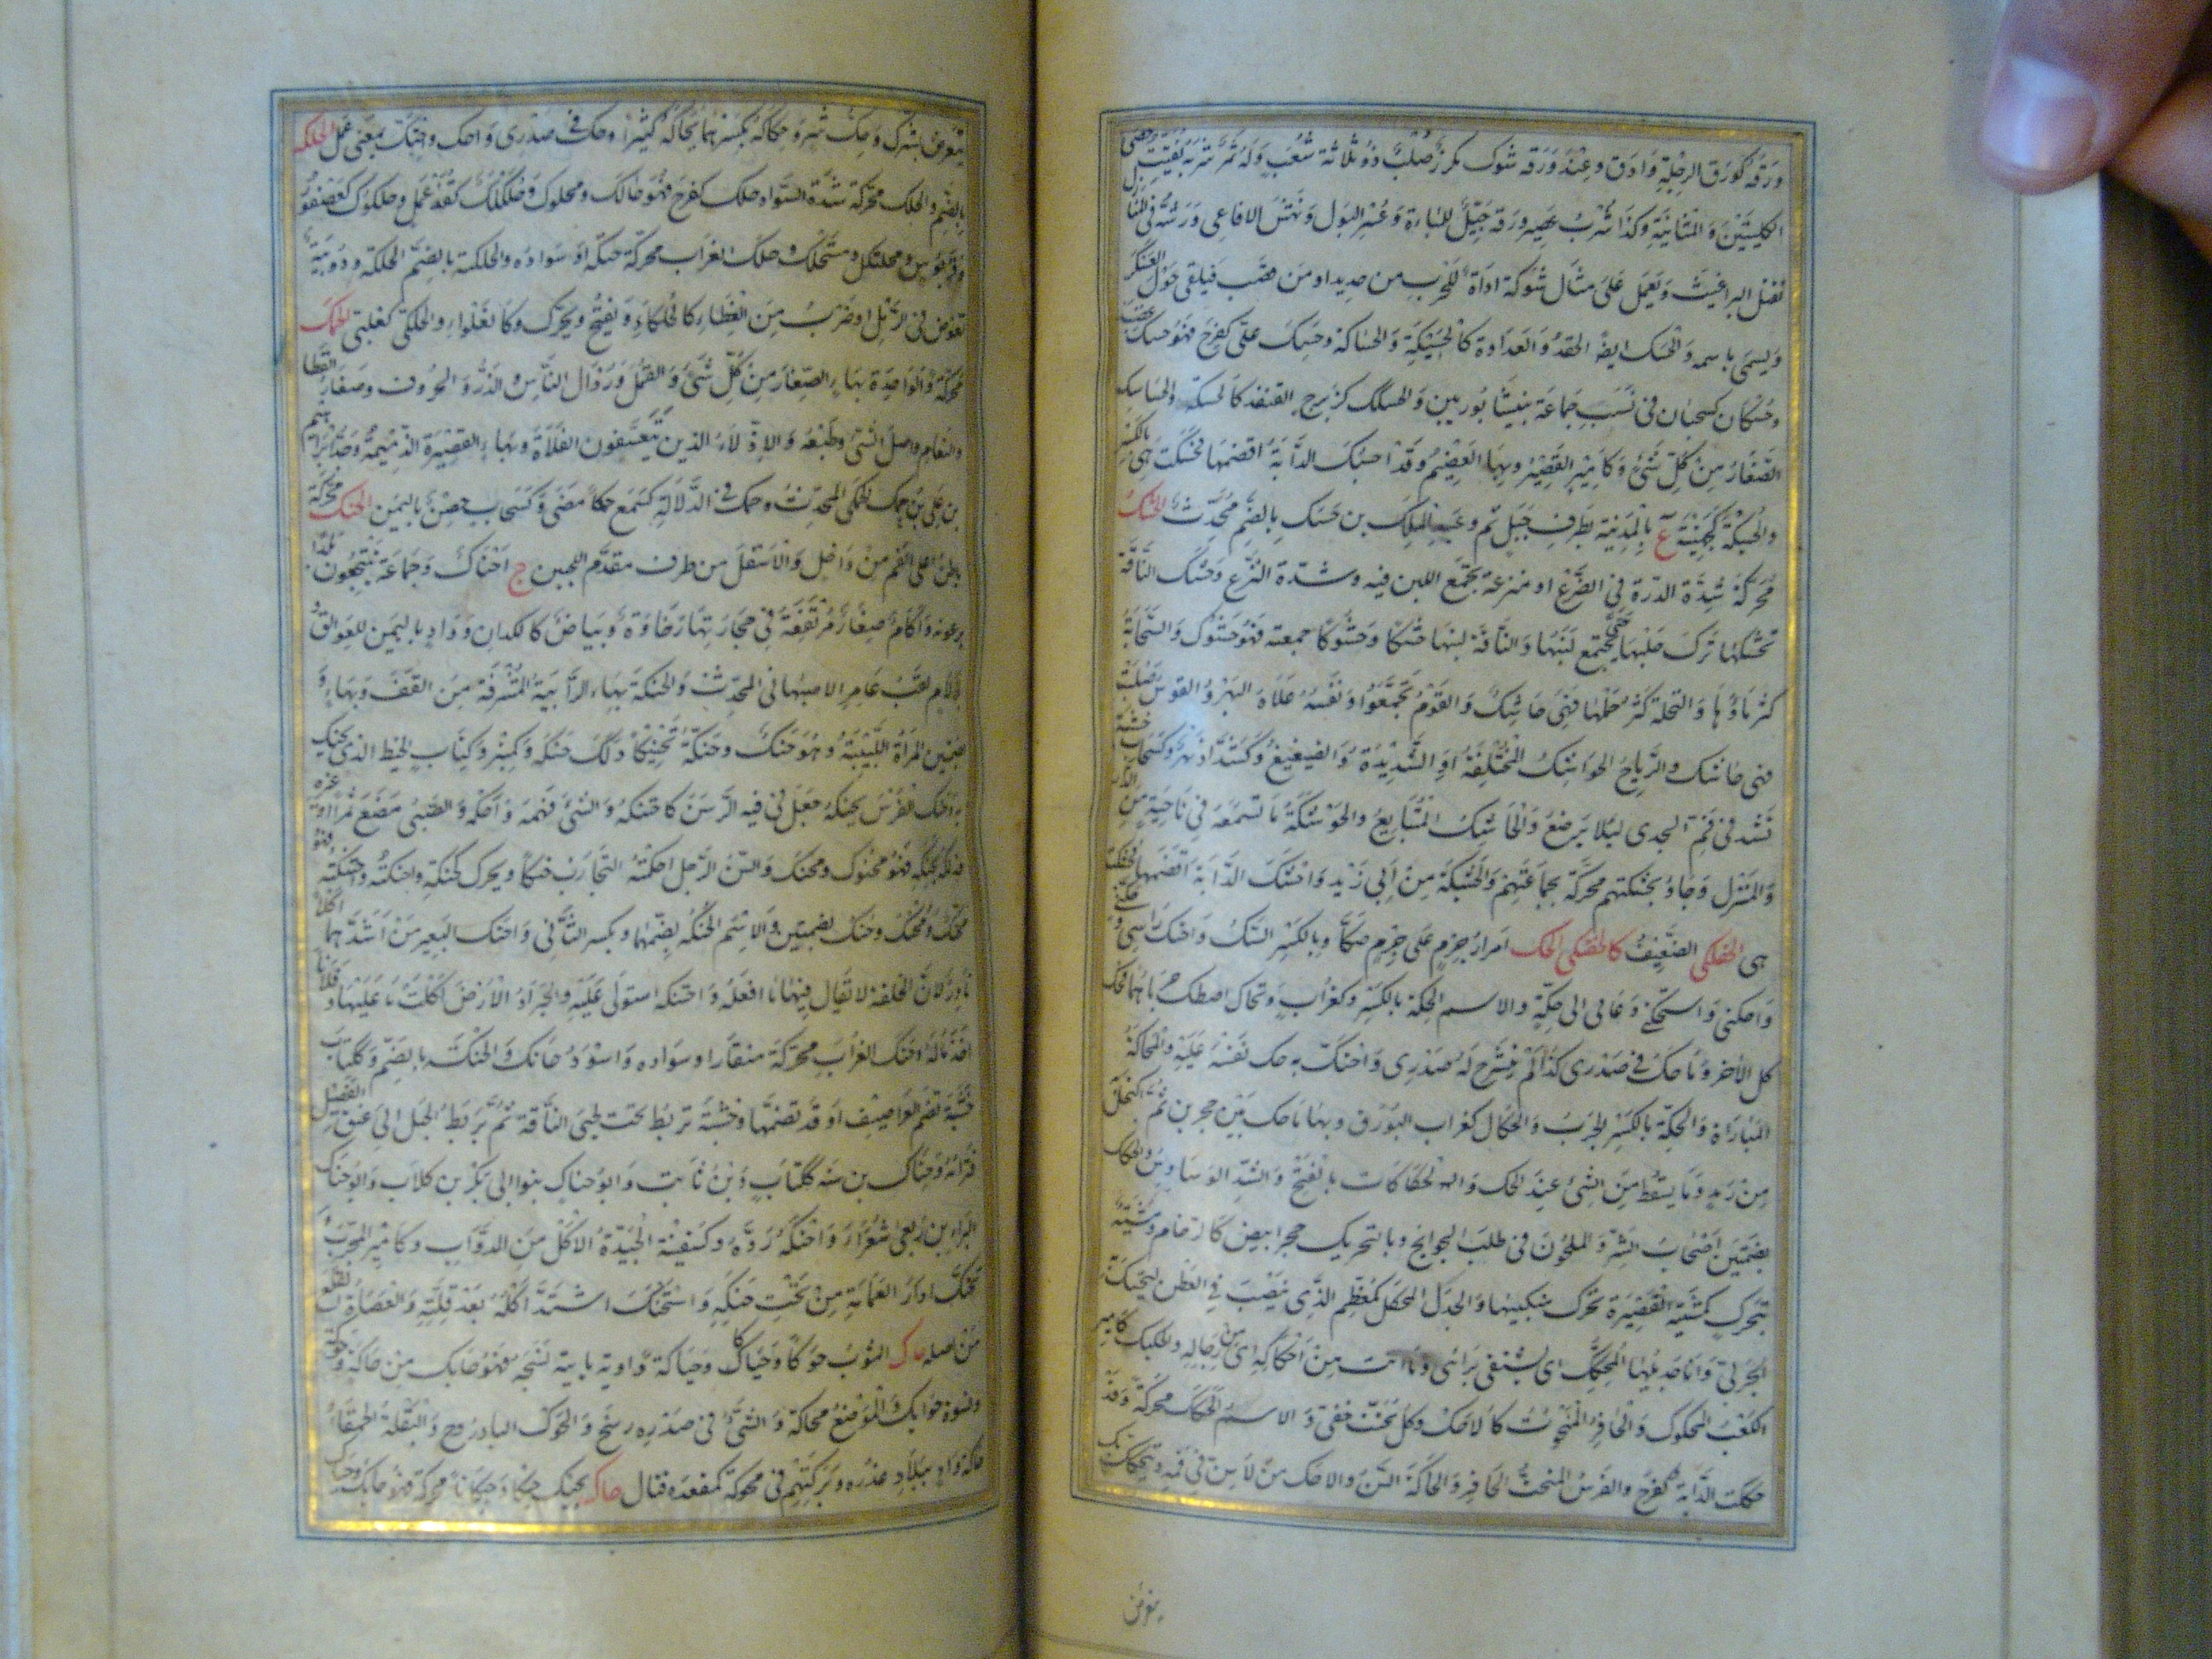 ورقه كورق الرجلة وادق وعند ورقه شوك ملزز صلب ذو ثلاثة شعب وله ثمر شربه يفتت حصى
الكليتين والمثانة وكذا شرب عصير ورقه جيد للباءة وعسر البول ونهش الافاعى ورشه فى المنازل
يقتل البراغيث ويعمل على مثال شوكه اداة للحرب من حديد او من قصب فيلقى حول العسكر
ويسمى باسمه والحسك ايضا الحقد والعداوة كالحسيكة والحساكة وحسك على كفرح فهو حسك
وحسكان كسحبان فى نسب جماعة نيسابوريين والحسكك كزبرج القنفذ كالحسكة والحساسك
الصغار من كل شئ وكامير القصير وبهاء القضيم وقد احسك الدابة اقضمها فحسكت هى بالكسر
والحسيكة كجهينة ع بالمدينة بطرف جبل ثم وعبد الملك بن حسك بالضم محدث الحشك
محركة شدة الدرة فى الضرع او سرعة تجمع اللبن فيه وشدة النزع وحشك الناقة
يحشكها ترك حلبها حتى يجتمع لبنها والناقة لبنها حشكا وحشوكا جمعته فهو حشوك والسحابة
كثر ماؤها والنخلة كثر حملها فهى حاشك والقوم تجمعوا ونفسه علاه البهر والقوس صلبت
فهى حاشك والرياح الحواشك المختلفة او الشديدة والضعيفة وكشداد نهر وككتاب خشبة
تشد فى فم الجدى ليلا يرضع والحاشك المتتابع والحوشكة ما تسمعه فى ناحية من الدار
والمنزل وجاؤ بحشكتهم محركة بجماعتهم والحشيكة من ابى زيد واحشك الدابة اقضمها فحشكت
هى الحفلكى الضعيف كالحفنكى الحك امرار جرم على جرم صكا وبالكسر الشك واحتك راسى
واحكنى واستحكنى دعانى الى حكه والاسم الحكة بالكسر وكغراب وتحاكا اصطك جرماهما فحك
كل الاخر وما حك فى صدرى كذا لم ينشرح له صدرى واحتك به حك نفسه عليه والمحاكة
المباراة والحكة بالكسر الجرب والحكاك كغراب البورق وبهاء ما حك بين حجرين ثم اكتحل به
من رمد وما يسقط من الشئ عند الحك والحكاكات بالفتح والشد الوساوس والحكك
بضمتين اصحاب الشر والملحون فى طلب الحوائج وبالتحريك حجر ابيض كالرخام ومشية
بتحرك كمشية القصيرة تحرك منكبيها والجذل المحكك كمعظم الذى ينصب فى العطن لتحتك به
الجربى وانا جذيلها المحكك اى يستشفى برائى وما انت من احكاكه اى من رجاله والحكيك كامير
الكعب المحكوك والحافر المنحوت كالاحك وكل نحت خفى والاسم الحكك محركة وقد
حككت الدابة كفرح والفرس المنحت الحافر والحاكة السن والاحك من لا سن فى فمه ويتحكك بك
يتعرض
يتعرض بشرك وحك شر وحكاكه بكسرهما يحاكه كثيرا وحك فى صدرى واحك واحتك بمعنى عمل الحلكة
بالضم والحلك محركة شدة السواد حلك كفرح فهو حالك ومحلوك وحلكلك كقذعمل وحلكوك كعصفور
وقربوس ومحلنكك ومستحلك وحلك الغراب محركة حنكه او سواده والحلكة بالضم الحلكة ودويبة
تغوص فى الرمل او ضرب من العظاء كالحلكاء ويفتح ويحرك وكالغلواء والحلكى كغلبى الحمك
محركة والواحدة بهاء الصغار من كل شئ والقمل ورذال الناس والذر والحروف وصغار القطا
والنعام واصل الشئ وطبعه والادلاء الذين يتعسفون الفلاة وبهاء القصيرة الدميمة وجد ابراهيم
بن على بن حمك الحمكى المحدث وحمك فى الدلالة كسمع حمكا مضى وكسحاب حصن باليمن الحنك محركة
باطن اعلى الفم من داخل والاسفل من طرف مقدم اللحيين ج احناك وجماعة ينتجعون بلدا
يرعونه واكام صغار مرتفعة فى حجارتها رخاوة وبياض كالكدان وواد باليمن للعوالق
وبلالام لقب عامر الاصبهانى المحدث والحنكة بهاء الرابية المشرفة من القف وبهاء و
بضمتين المراة اللبيبة وهو حنك وحنكه تحنيكا دلك حنكه وكمنبر وكتاب الخيط الذى يحنك
به وحنك الفرس يحنكه جعل فى فيه الرسن كاحتنكه والشئ فهمه واحكمه والصبى مضغ تمرا او غيره
فدلكه بحنكه فهو محنوك ومحنك والسن الرجل احكمته التجارب حنكا ويحرك كحنكته واحنكته واحتنكته فهو
محنك ومحتنك وحنك بضمتين والاسم الحنكة بضمهما وبكسر الثانى واحنك البعيرين اشدهما اكلا
نادر لان الخلقة لا يقال فيها ما افعله واحتنكه استولى عليه والجراد الارض اكلت ما عليها وفلانا
اخذ ماله وحنك الغراب محركة منقاره او سواده واسود حانك والحنكة بالضم وككتاب
خشبة تضم الغراضيف او قدة تضمها وخشبة تربط تحت لحيى الناقة ثم تربط الحبل الى عنق الفصيل
فترامه وحناك بن سنة ككتاب وبن ثابت وابو حناك بنو ابى بكر بن كلاب وابو حناك
البراء بن ربعى شعراء واحنكه رده وكسفينة الجيدة الاكل من الدواب وكامير المجرب و
تحنك ادار العمامة من تحت حنكه واستحنك اشتد اكله بعد قلته والعضاه انقلع
من اصله حاك الثوب حوكا وحياكا وحياكة واوية يائية نسجه فهو حائك من حاكة وحوكة
ونسوة حوائك والموضع محاكة والشئ فى صدره رسخ والحوك الباذروج والبقلة الحمقاء
حاكة واد ببلاد عذرة وتركتهم فى محوكة كمقعدة قتال حاك يحيك حيكا وحيكانا محركة فهو حائك وحياك